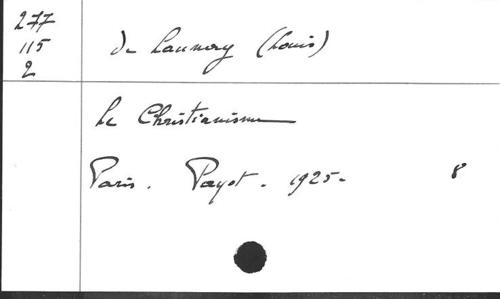 277
115
2
de Launay (Louis)
Le Christianisme
Paris. Payot. 1925- 8